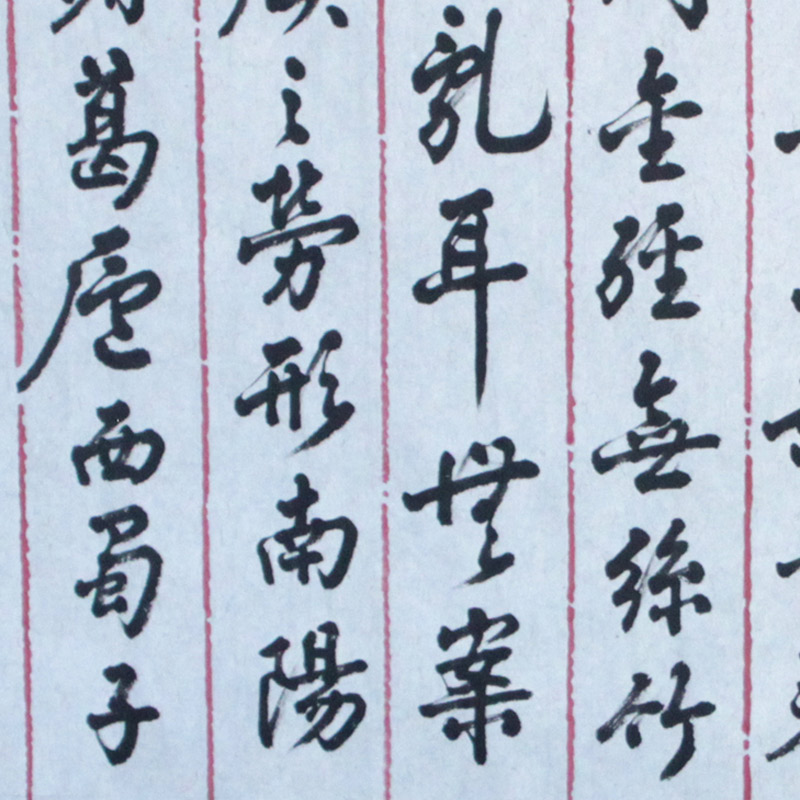 金經無絲竹
亂耳無案
之勞形南陽
葛廬西蜀子